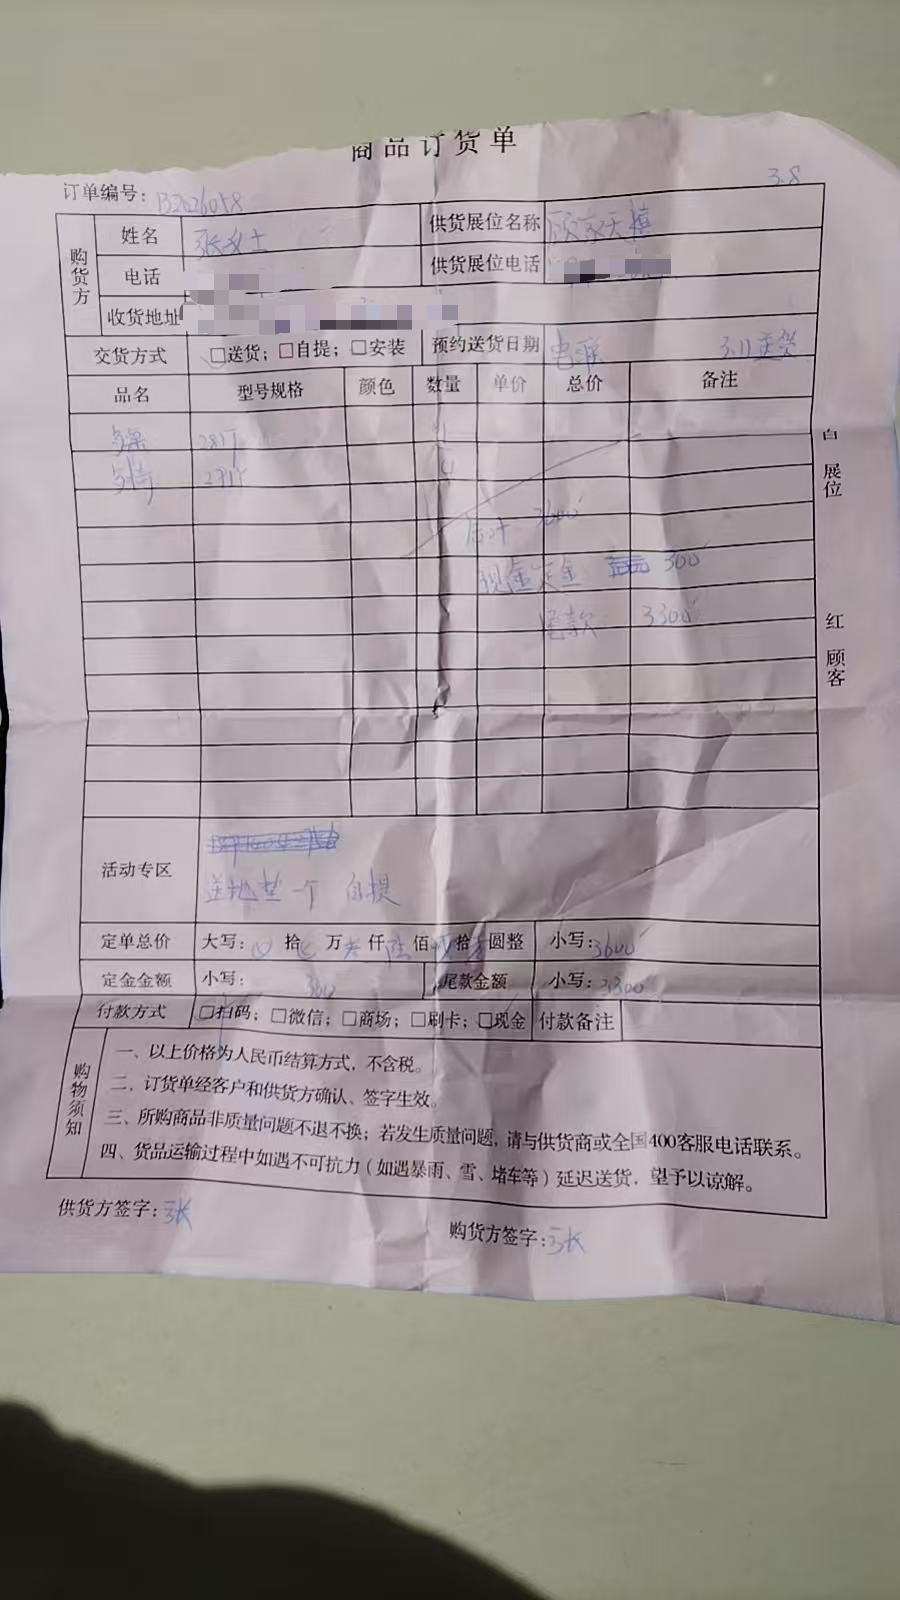 商品订货单
订单编号：B2026058 3.8
购货方 姓名 张女士 供货展位名称 顾家天禧
电话 供货展位电话
收货地址
交货方式 □送货；□自提；□安装 预约送货日期 电联 3.11送货
品名 型号规格 颜色 数量 单价 总价 备注
281
4
合计 3600
现金定金 300
尾款 3300
白 展位
红 顾客
活动专区
送地垫一个 自提
定单总价 大写： 拾 万 仟 陆 佰 拾 圆整 小写：3600
定金金额 小写：300 尾款金额 小写：3300
付款方式 □扫码；□微信；□商场；□刷卡；□现金 付款备注
购物须知
一、以上价格为人民币结算方式，不含税。
二、订货单经客户和供货方确认、签字生效。
三、所购商品非质量问题不退不换；若发生质量问题，请与供货商或全国400客服电话联系。
四、货品运输过程中如遇不可抗力（如遇暴雨、雪、堵车等）延迟送货，望予以谅解。
供货方签字：张
购货方签字：张